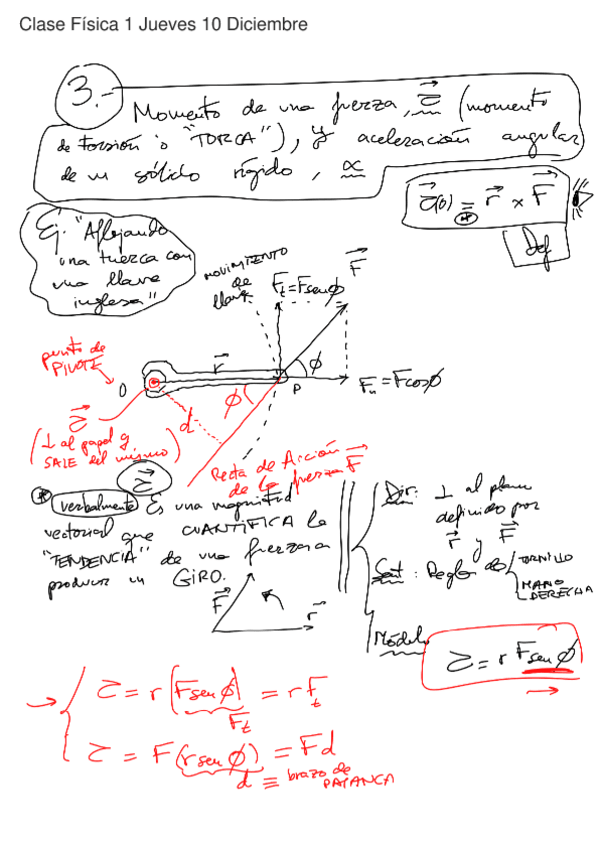 Clase Física 1 Jueves 10 Diciembre
3.-
Momento de una fuerza, τ⃗ (momento
de torsión ó "TORCA"), y aceleración angular
de un sólido rígido, α
τ⃗(0) = r⃗ × F⃗
(*)
Def
Ej. "Aflojando
una tuerca con
una llave
inglesa"
MOVIMIENTO
de
llave
F_t = F sen ϕ
F⃗
punto de
PIVOTE
r⃗
ϕ
O
P
F_n = F cos ϕ
ϕ
d
τ⃗
(⊥ al papel y
SALE del mismo)
Recta de Acción
de la fuerza F⃗
τ⃗
(*) verbalmente Es una magnitud
vectorial que CUANTIFICA la
"TENDENCIA" de una fuerza a
producir un GIRO.
F⃗
r⃗
Dir: ⊥ al plano
definido por
r⃗ y F⃗
Sent: Regla de TORNILLO
MANO
DERECHA
Módulo
τ = r F sen ϕ
→ τ = r (F sen ϕ) = r F_t
F_t
τ = F (r sen ϕ) = F d
d ≡ brazo de
PALANCA